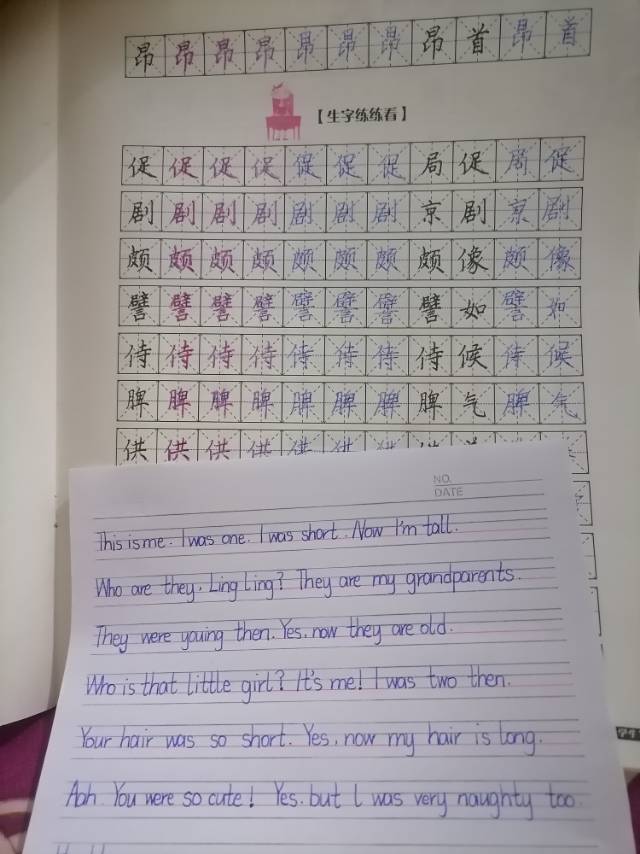 昂昂昂昂昂昂昂昂首昂首
【生字练练看】
促促促促促促促局促局促
剧剧剧剧剧剧剧京剧京剧
颇颇颇颇颇颇颇颇像颇像
譬譬譬譬譬譬譬譬如譬如
侍侍侍侍侍侍侍侍候侍候
脾脾脾脾脾脾脾脾气脾气
供供供供供供供供
NO.
DATE
This is me. I was one. I was short. Now I'm tall.
Who are they, Ling Ling? They are my grandparents.
They were youing then. Yes, now they are old.
Who is that little girl? It's me! I was two then.
Your hair was so short. Yes, now my hair is long.
Aah. You were so cute! Yes, but I was very naughty too.